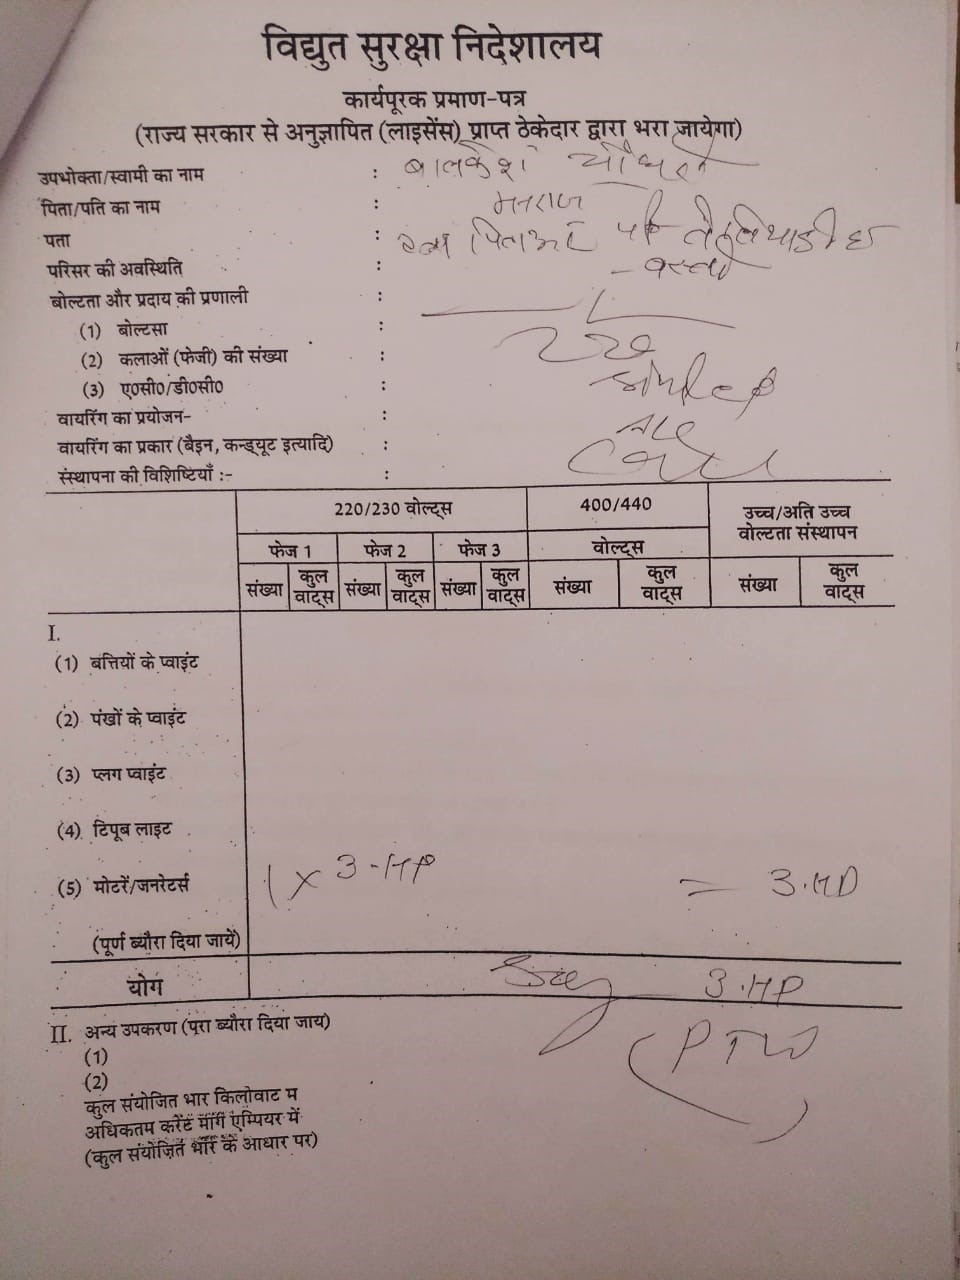 विद्युत सुरक्षा निदेशालय
कार्यपूरक प्रमाण-पत्र
(राज्य सरकार से अनुज्ञापित (लाइसेंस) प्राप्त ठेकेदार द्वारा भरा जायेगा)
उपभोक्ता/स्वामी का नाम : बालकेश चौधरी
पिता/पति का नाम :
पता :
परिसर की अवस्थिति : - बस्ती
बोल्टता और प्रदाय की प्रणाली :
(1) बोल्टसा :
(2) कलाओं (फेजी) की संख्या :
(3) ए०सी०/डी०सी० :
वायरिंग का प्रयोजन- :
वायरिंग का प्रकार (बैइन, कन्ड्यूट इत्यादि) :
संस्थापना की विशिष्टियाँ :- :
220/230 वोल्ट्स 400/440 उच्च/अति उच्च
वोल्टता संस्थापन
फेज 1 फेज 2 फेज 3 वोल्ट्स
संख्या कुल वाट्स संख्या कुल वाट्स संख्या कुल वाट्स संख्या कुल वाट्स संख्या कुल वाट्स
I.
(1) बत्तियों के प्वाइंट
(2) पंखों के प्वाइंट
(3) प्लग प्वाइंट
(4) टिपूब लाइट
(5) मोटरें/जनरेटर्स 1 x 3-HP = 3.HP
(पूर्ण ब्यौरा दिया जाये)
योग 3.HP
II. अन्य उपकरण (पूरा ब्यौरा दिया जाय) (PTW)
(1)
(2)
कुल संयोजित भार किलोवाट म
अधिकतम करेंट मांग एम्पियर में
(कुल संयोजित भार के आधार पर)